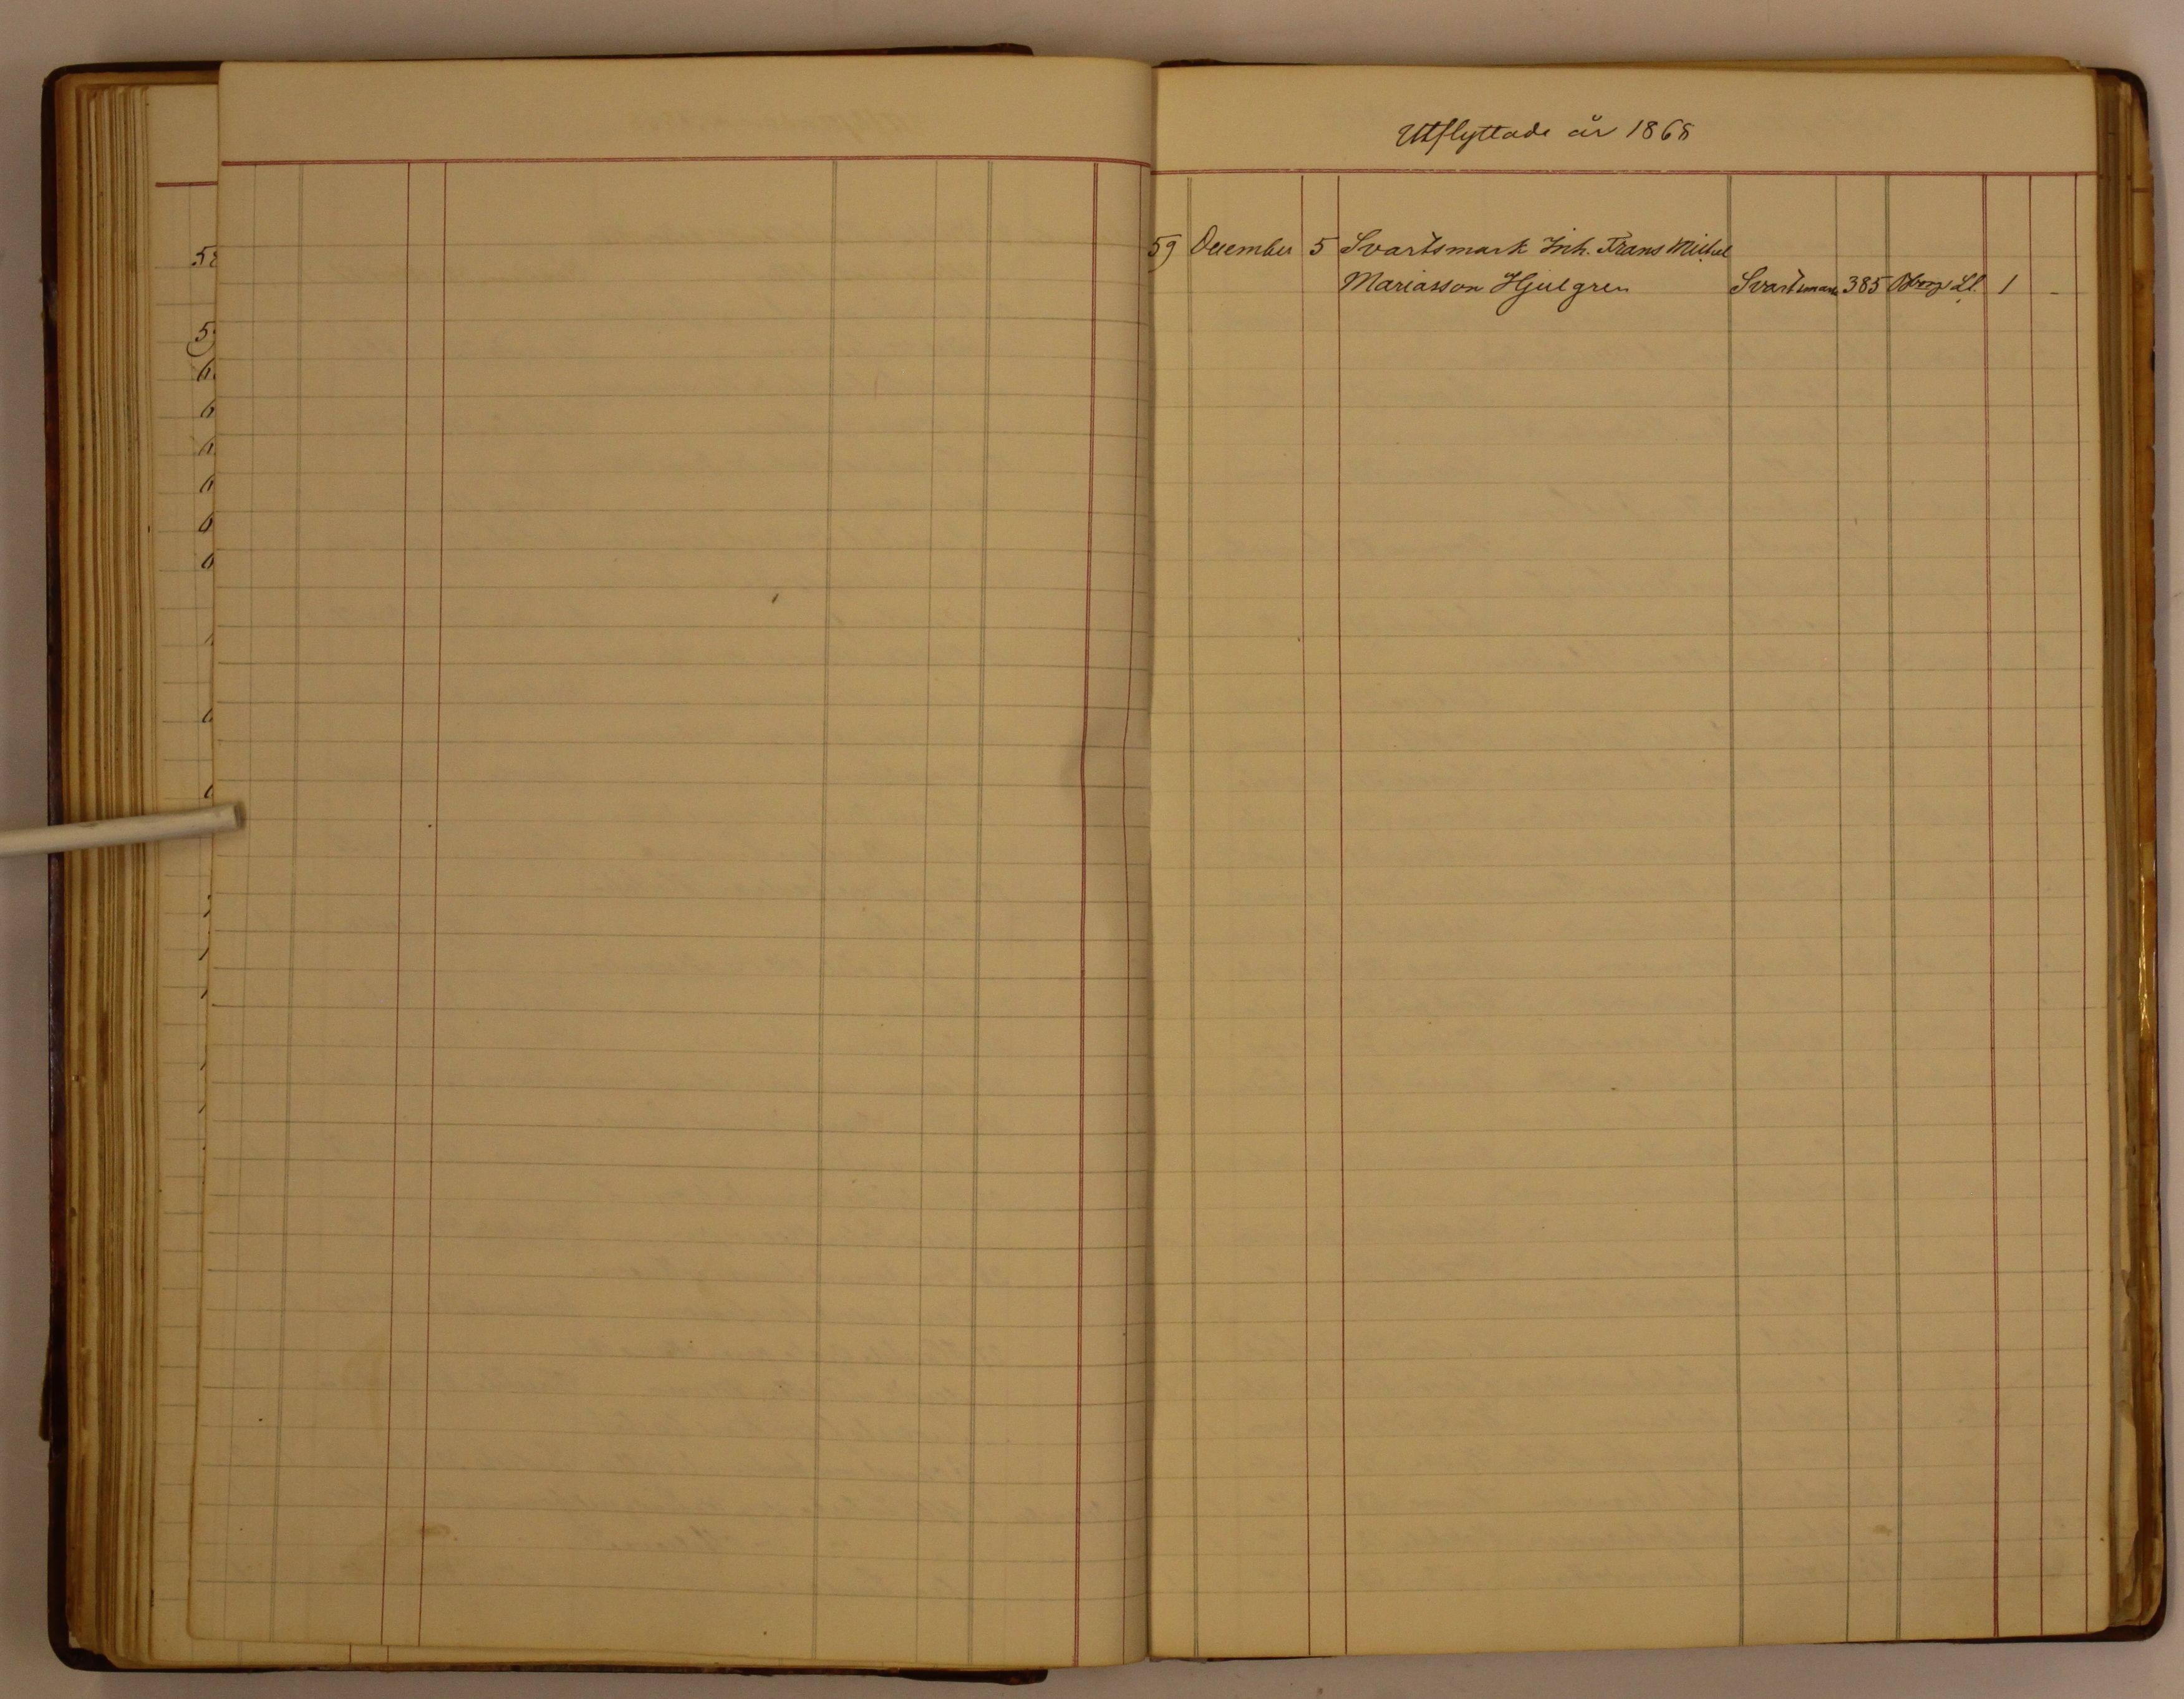 Utflyttade år 1868
59 December 5 Svartsmark Inh. Frans Michel
Mariasson Hjulgren Svartsmark 385 Ll. 1 -